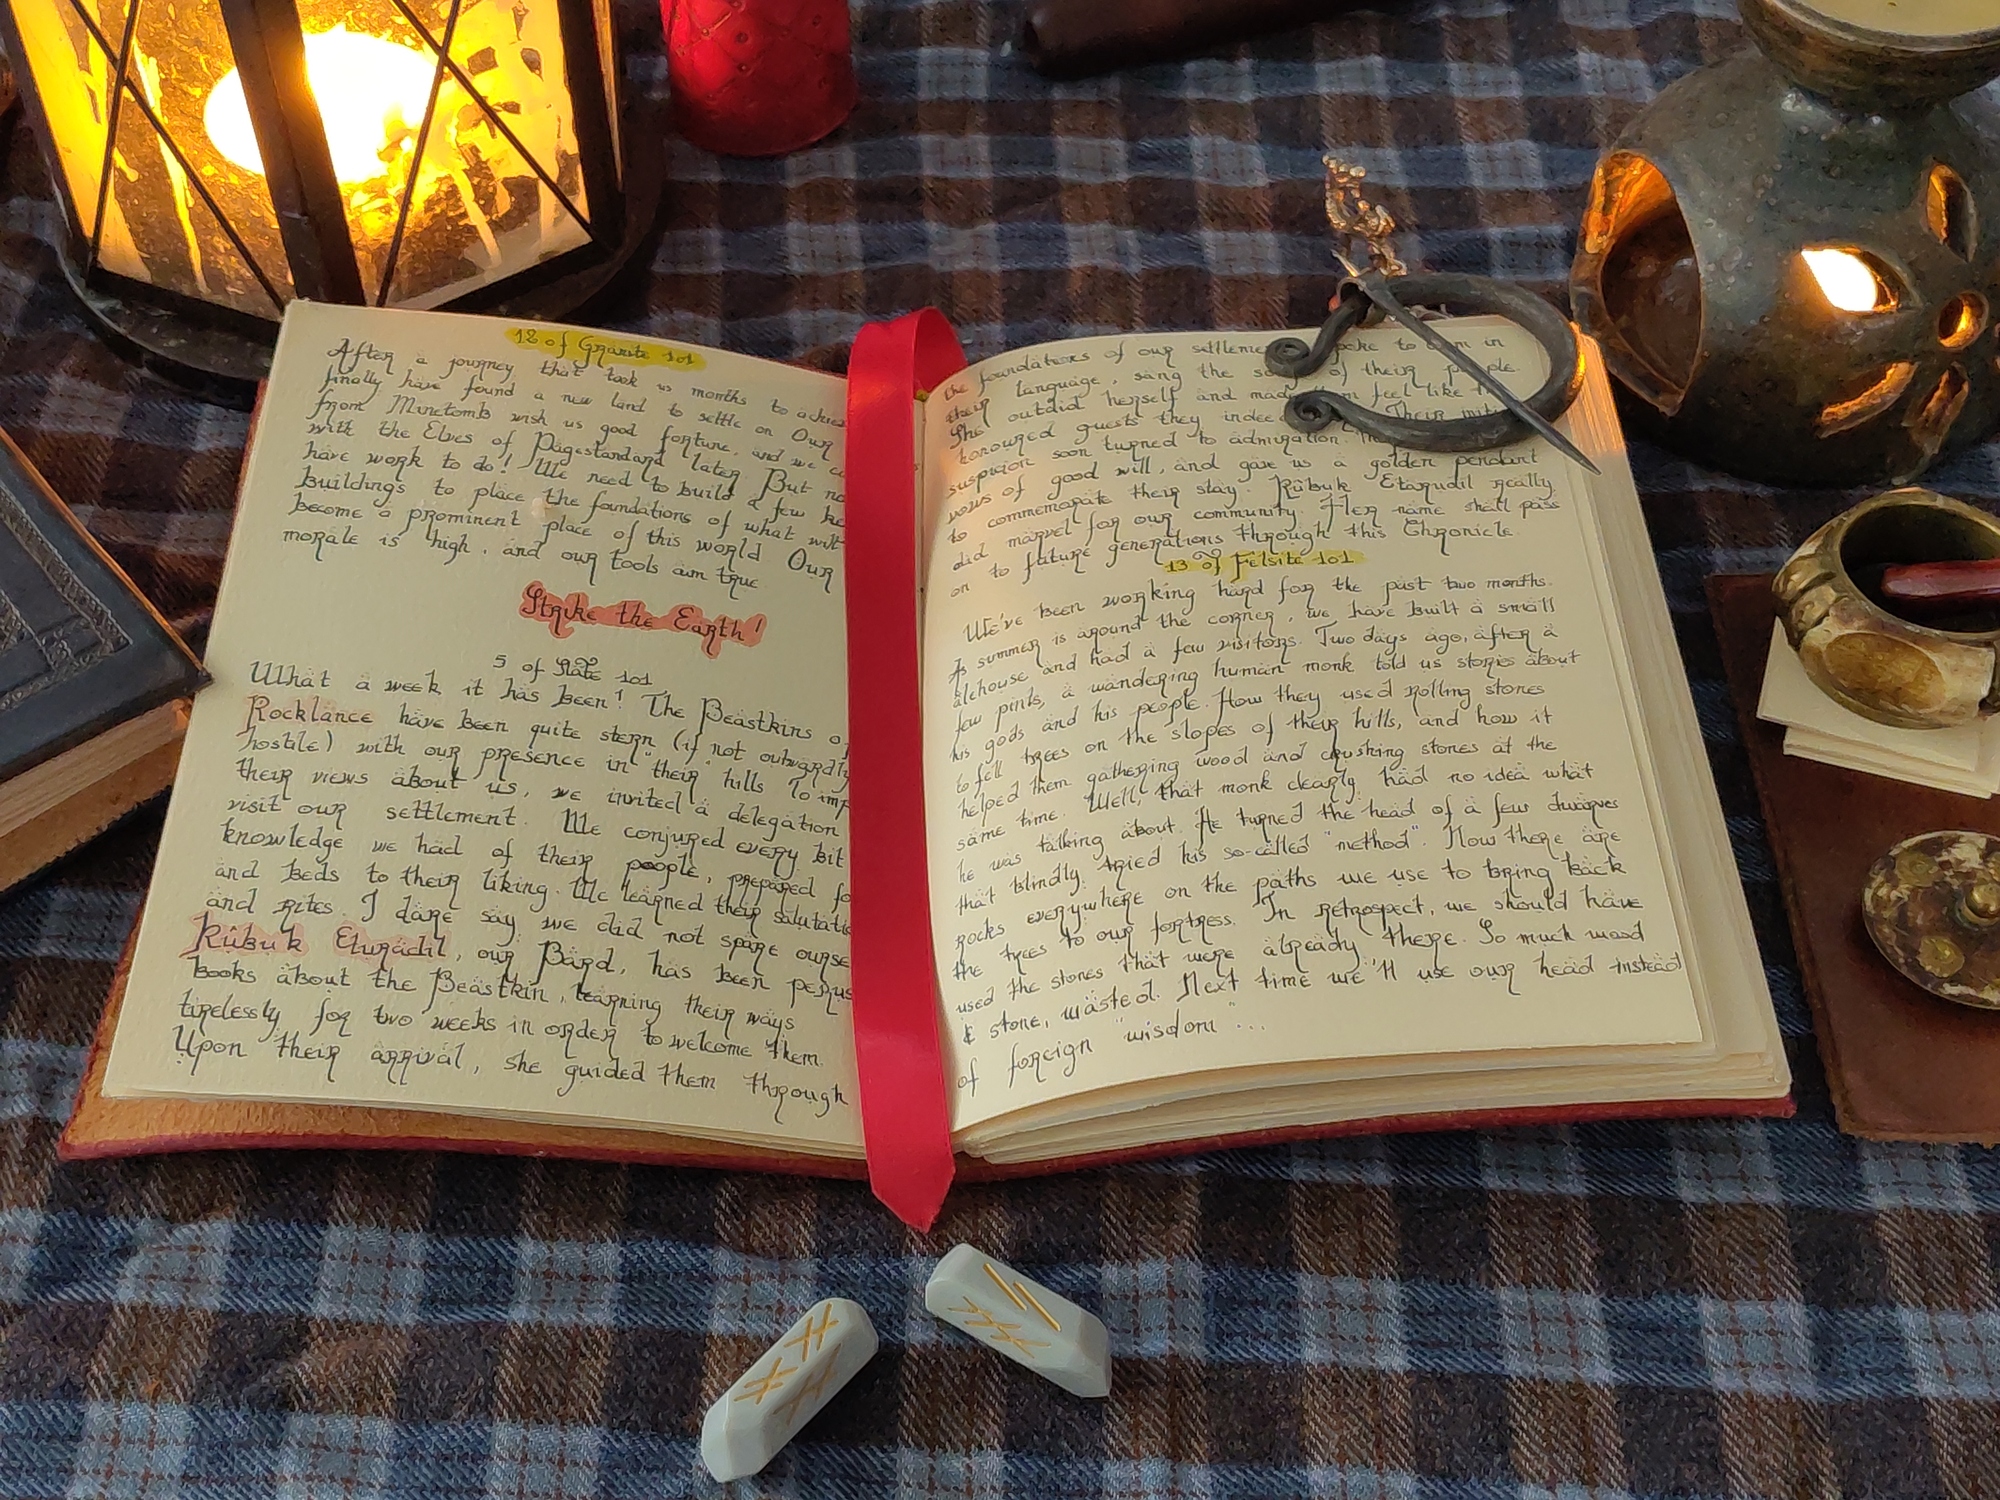 12 of Granite 101
After a journey that took us months to achieve
finally have found a new land to settle on Our
from Minetomb wish us good fortune, and we
with the Elves of Pagestandard later. But
have work to do! We need to build a few
buildings to place the foundations of what will
become a prominent place of this world Our
morale is high, and our tools aim true
Strike the Earth!
5 of Slate 101
What a week it has been! The Beastkins of
Rocklance have been quite stern (if not outwardly
hostile) with our presence in "their" hills To
their views about us, we invited a delegation
visit our settlement. We conjured every bit
knowledge we had of their people, prepared
and beds to their liking. We learned their
and rites. I dare say we did not spare
Rûbuk Eturadil, our Bard, has been
books about the Beastkin, learning their ways
tirelessly for two weeks in order to welcome them.
Upon their arrival, she guided them through
the foundations of our spoke to them in
their language, sang the of their people.
She outdid herself and made feel like the
honoured guests they indeed Their
suspicion soon turned to admiration.
vows of good will, and gave us a golden pendant
to commemorate their stay. Rûbuk Etaqudil really
did marvel for our community. Her name shall pass
on to future generations through this Chronicle.
13 of Felsite 101
We've been working hard for the past two months.
As summer is around the corner, we have built a small
alehouse and had a few visitors. Two days ago, after a
few pints, a wandering human monk told us stories about
his gods and his people. How they used rolling stones
to fell trees on the slopes of their hills, and how it
helped them gathering wood and crushing stones at the
same time. Well, that monk clearly had no idea what
he was talking about. He turned the head of a few dwarves
that blindly tried his so-called "method". Now there are
rocks everywhere on the paths we use to bring back
the trees to our fortress. In retrospect, we should have
used the stones that were already there. So much wood
& stone, wasted. Next time we'll use our head instead
of foreign "wisdom"...